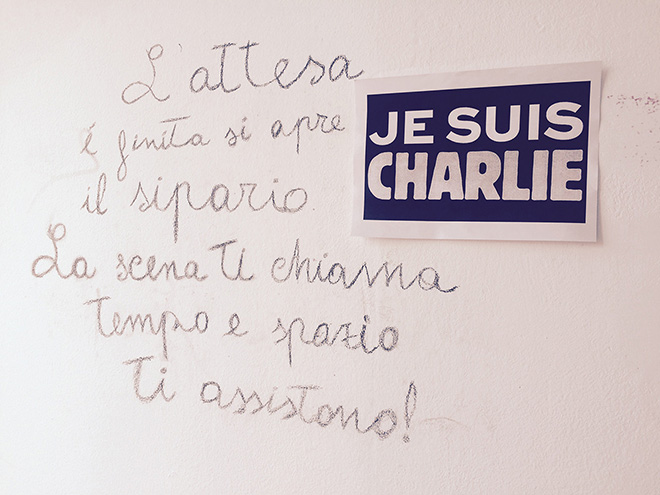 L'attesa
é finita si apre
il sipario
La scena ti chiama
tempo e spazio
ti assistono!
JE SUIS
CHARLIE